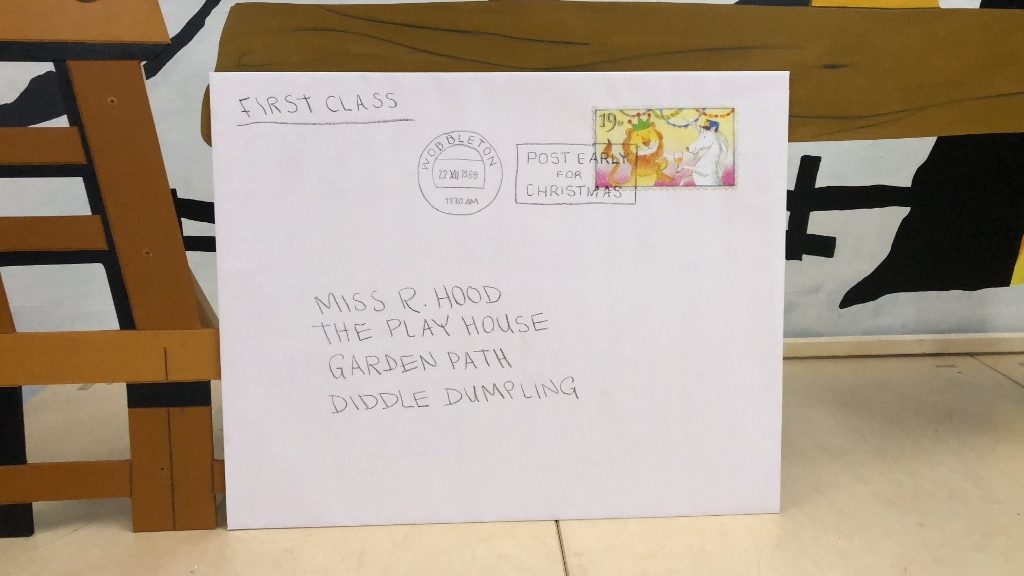 FIRST CLASS
WOBBLETON
22 XII 1986
1130 AM
POST EARLY
FOR
CHRISTMAS
19p
MISS R. HOOD
THE PLAY HOUSE
GARDEN PATH
DIDDLE DUMPLING